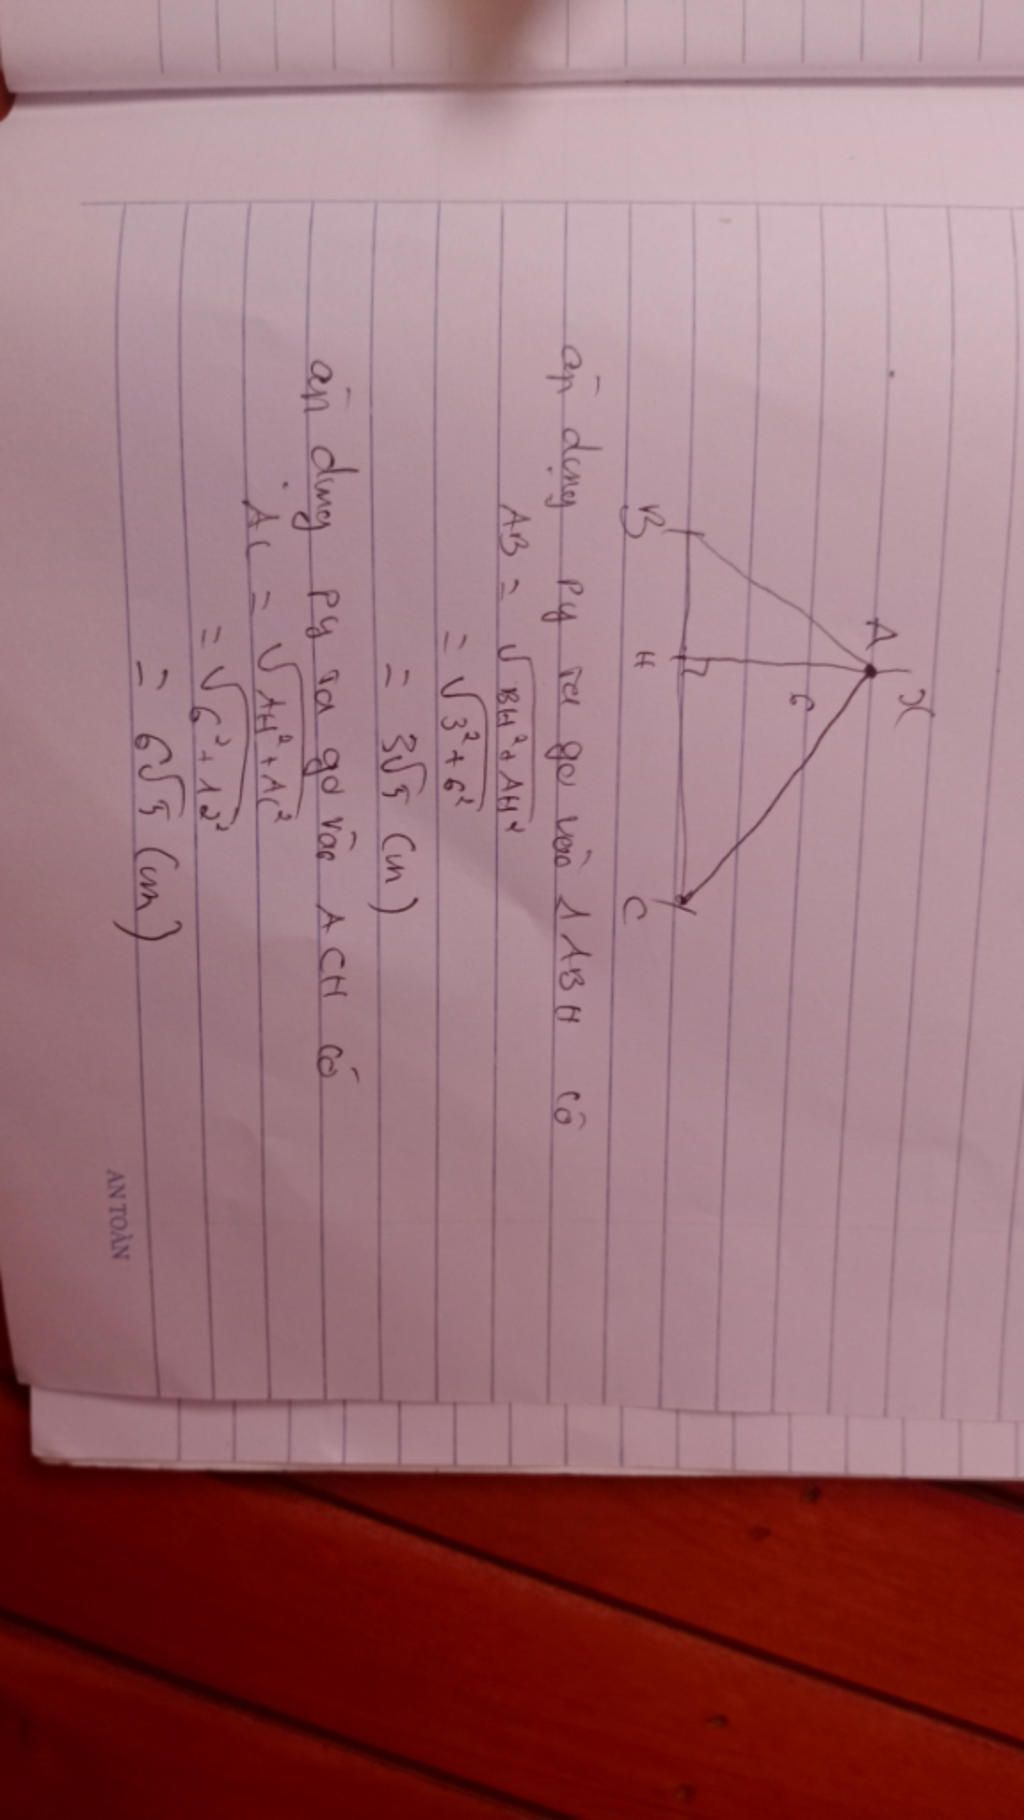 X
A
6
B H C
áp dụng py ta go vào ΔABH có
AB = √BH²+AH²
= √3²+6²
= 3√5 (cm)
áp dụng py ta go vào ACH có
AC = √AH²+AC²
= √6²+12²
= 6√5 (cm)
AN TOÀN